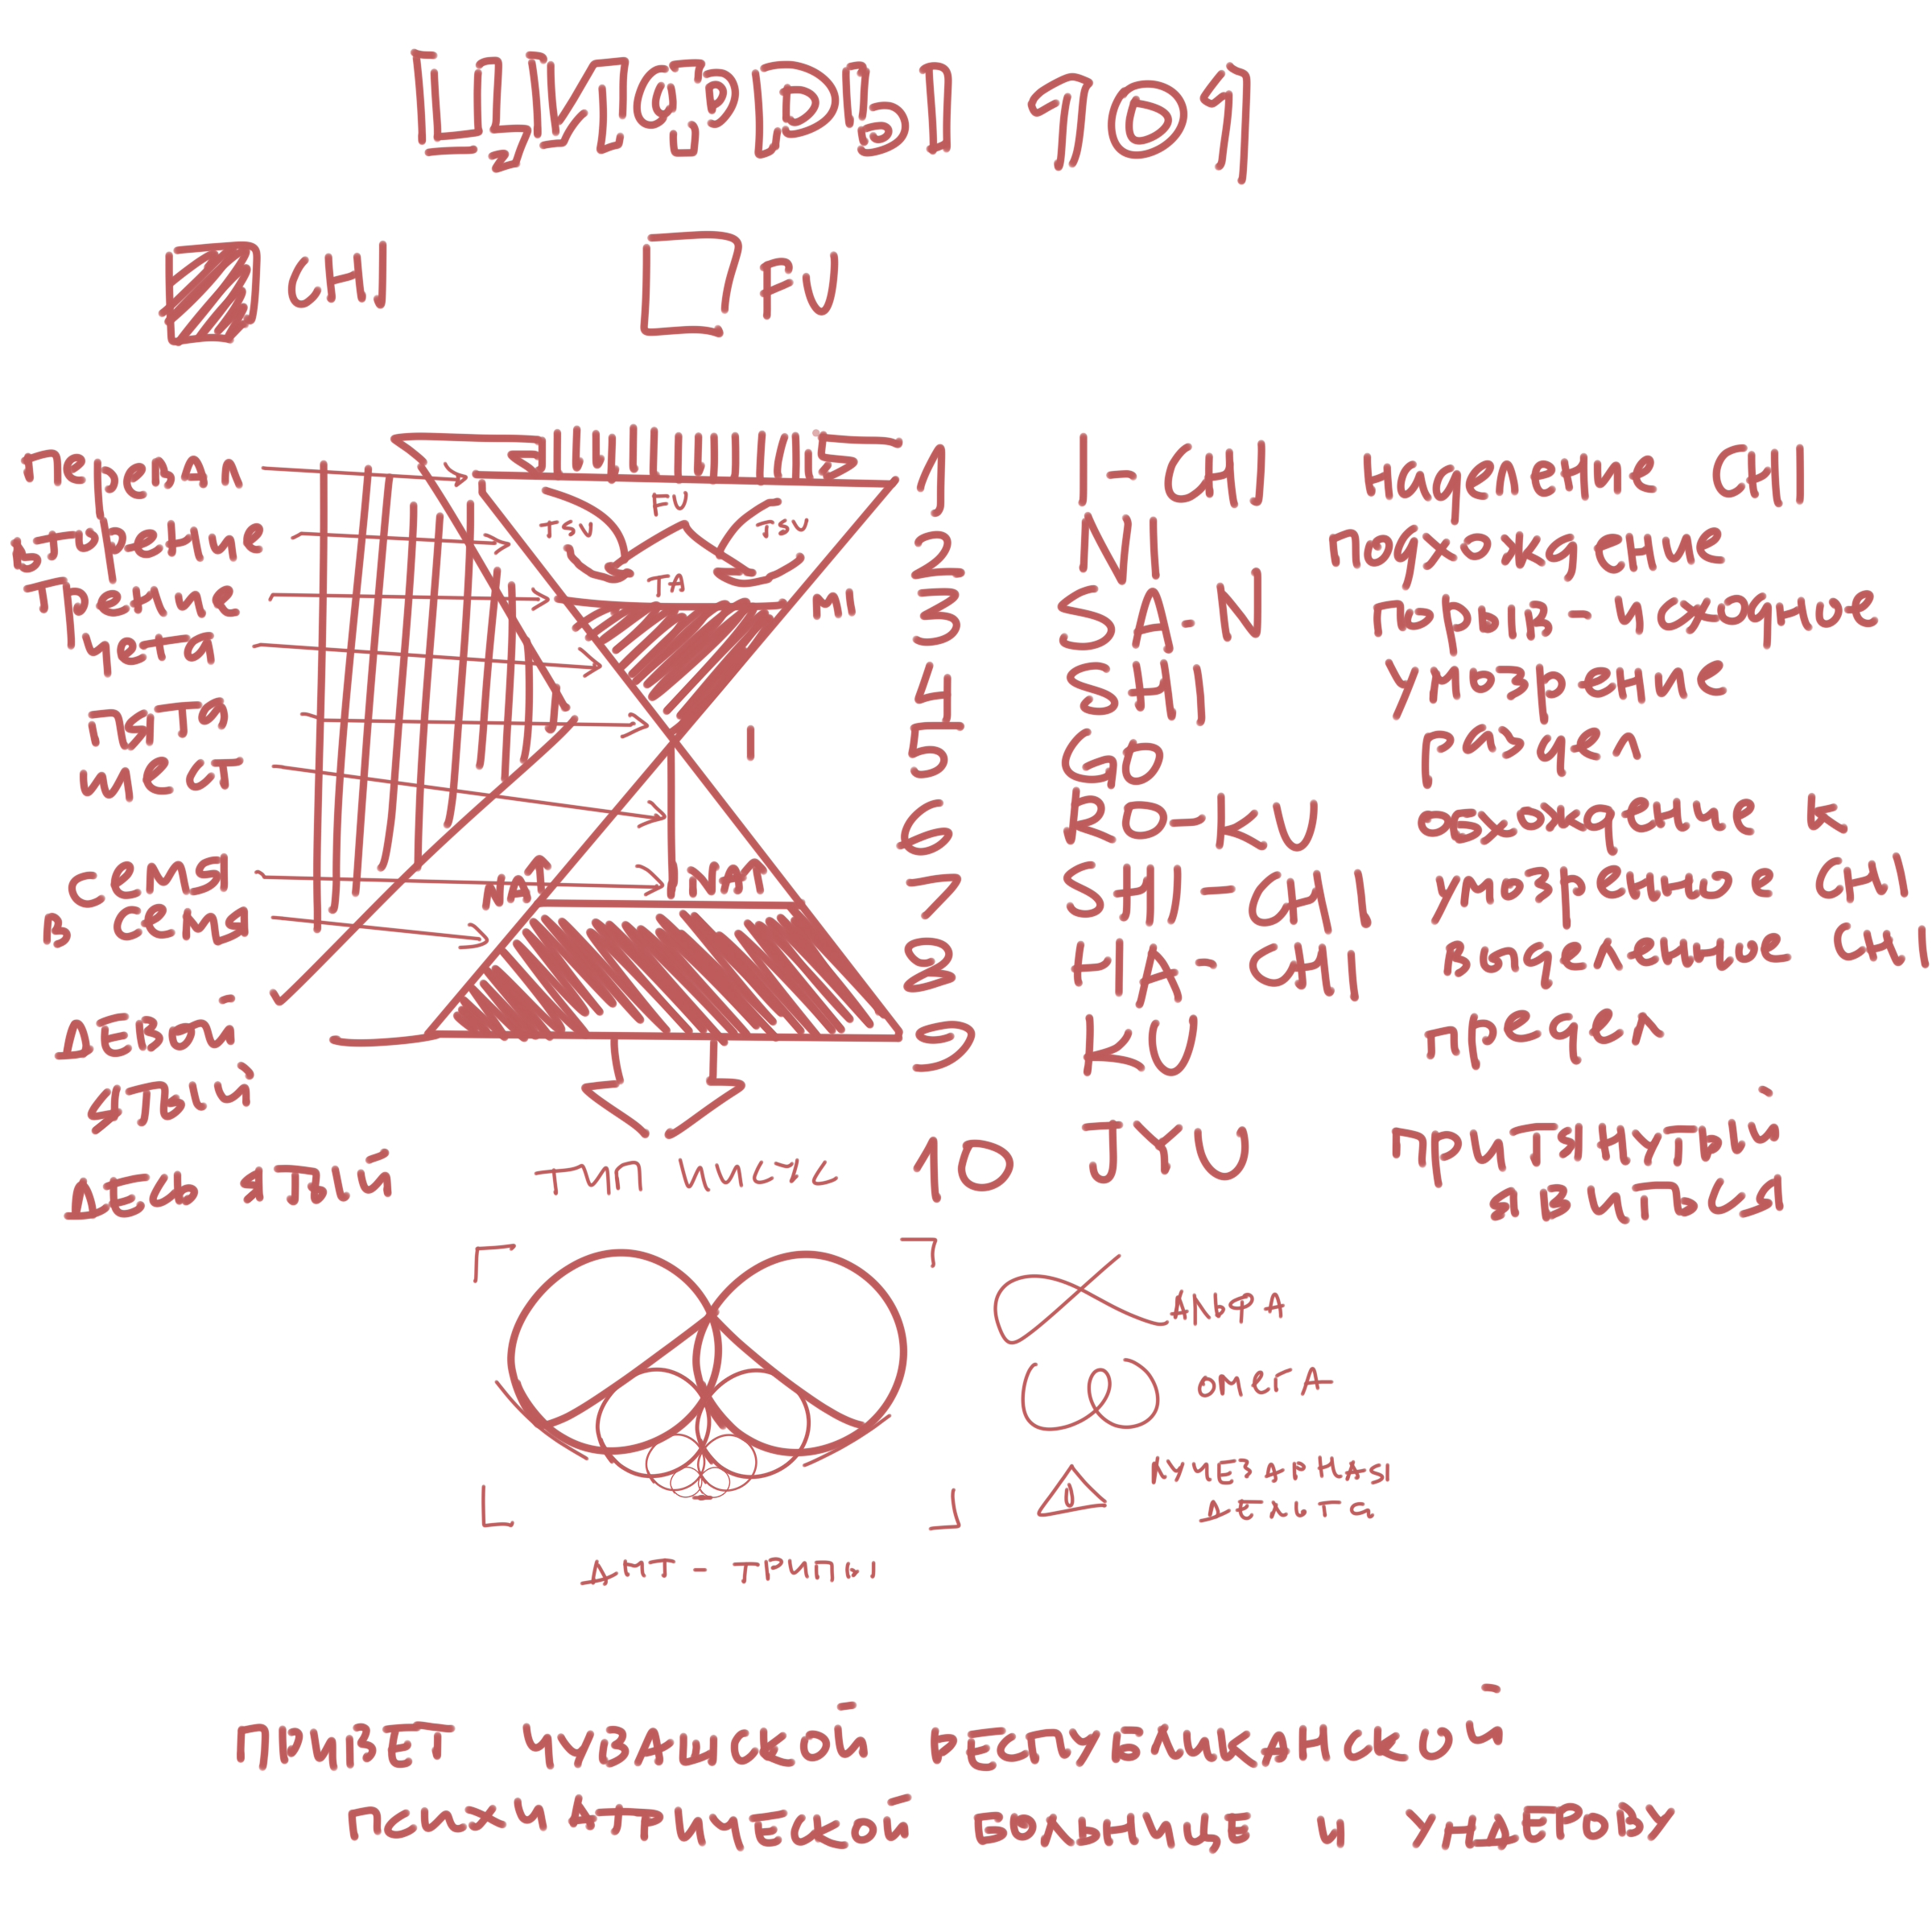 ЦИФРЫ 101
CHI
FU
Первал
втурение 1 I-CHI Наделение CHI
Трение 2 NIподухождение
чрета 3 SA-N порыв-исходние
пята 4 SHI упозрение
шест 5 GO раздел
6 RO-KU обхождение к
семel 7 SHI-CHI умозренное CHI
восемя 8 HA-CHI выделенное CHI
ДЕвой 9 KU предел
ятый
ДЕсьятый 10 JYU ПРИТЯНУТЫЙ
явиться
FU
TSU
TSU
TA
NI
I
МАТ
I МАТ
АЛЬФА
ОМЕГА
ЛУЧЕЗАРНАЯ
ДЕЛЬТА
ДМТ - ТРИПЫ
ПРИВЕТ ЧУВАШСКОЙ РЕСПУБЛИКАНСКОЙ
ПСИХИАТРИЧЕСКОЙ БОЛЬНИЦЕ И УНДЕРОВУ